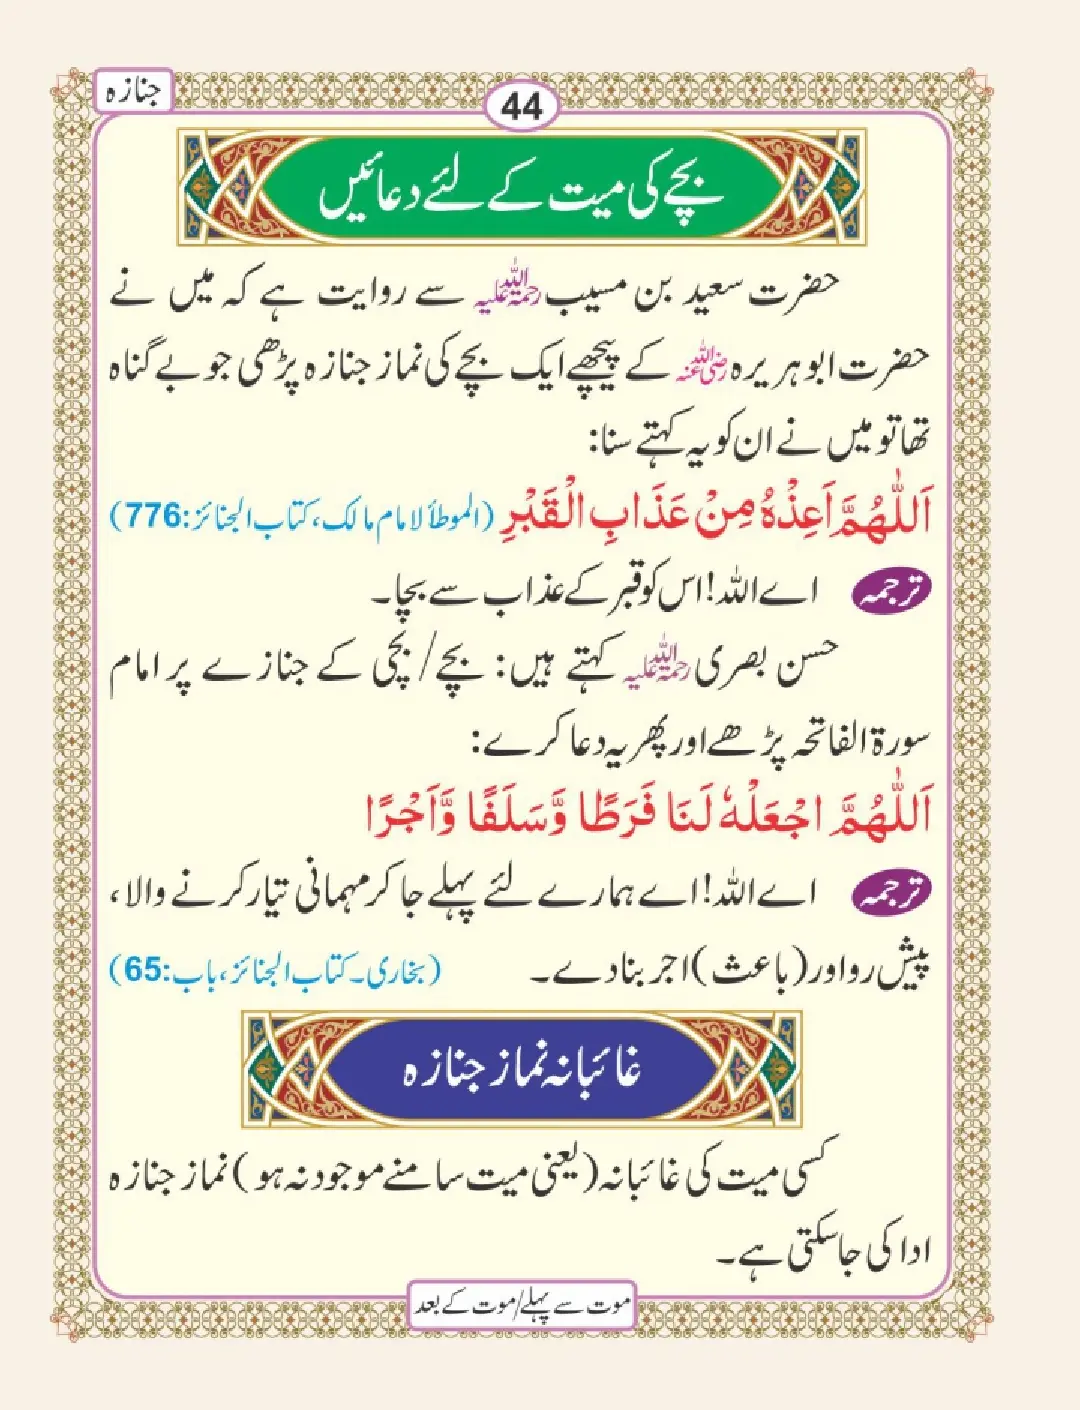 جنازہ
44
بچے کی میت کے لئے دعائیں
حضرت سعید بن مسیب رحمۃ اللہ علیہ سے روایت ہے کہ میں نے
حضرت ابو ہریرہ رضی اللہ عنہ کے پیچھے ایک بچے کی نماز جنازہ پڑھی جو بے گناہ
تھا تو میں نے ان کو یہ کہتے سنا:
اَللّٰهُمَّ اَعِذْهُ مِنْ عَذَابِ الْقَبْرِ (الموطأ لامام مالک، کتاب الجنائز:776)
ترجمہ اے اللہ! اس کو قبر کے عذاب سے بچا۔
حسن بصری رحمۃ اللہ علیہ کہتے ہیں: بچے/بچی کے جنازے پر امام
سورۃ الفاتحہ پڑھے اور پھر یہ دعا کرے:
اَللّٰهُمَّ اجْعَلْهُ لَنَا فَرَطًا وَّسَلَفًا وَّاَجْرًا
ترجمہ اے اللہ! اے ہمارے لئے پہلے جا کر مہمانی تیار کرنے والا،
پیش رو اور (باعث) اجر بنا دے۔ (بخاری۔ کتاب الجنائز، باب:65)
غائبانہ نماز جنازہ
کسی میت کی غائبانہ (یعنی میت سامنے موجود نہ ہو) نماز جنازہ
ادا کی جاسکتی ہے۔
موت سے پہلے/موت کے بعد